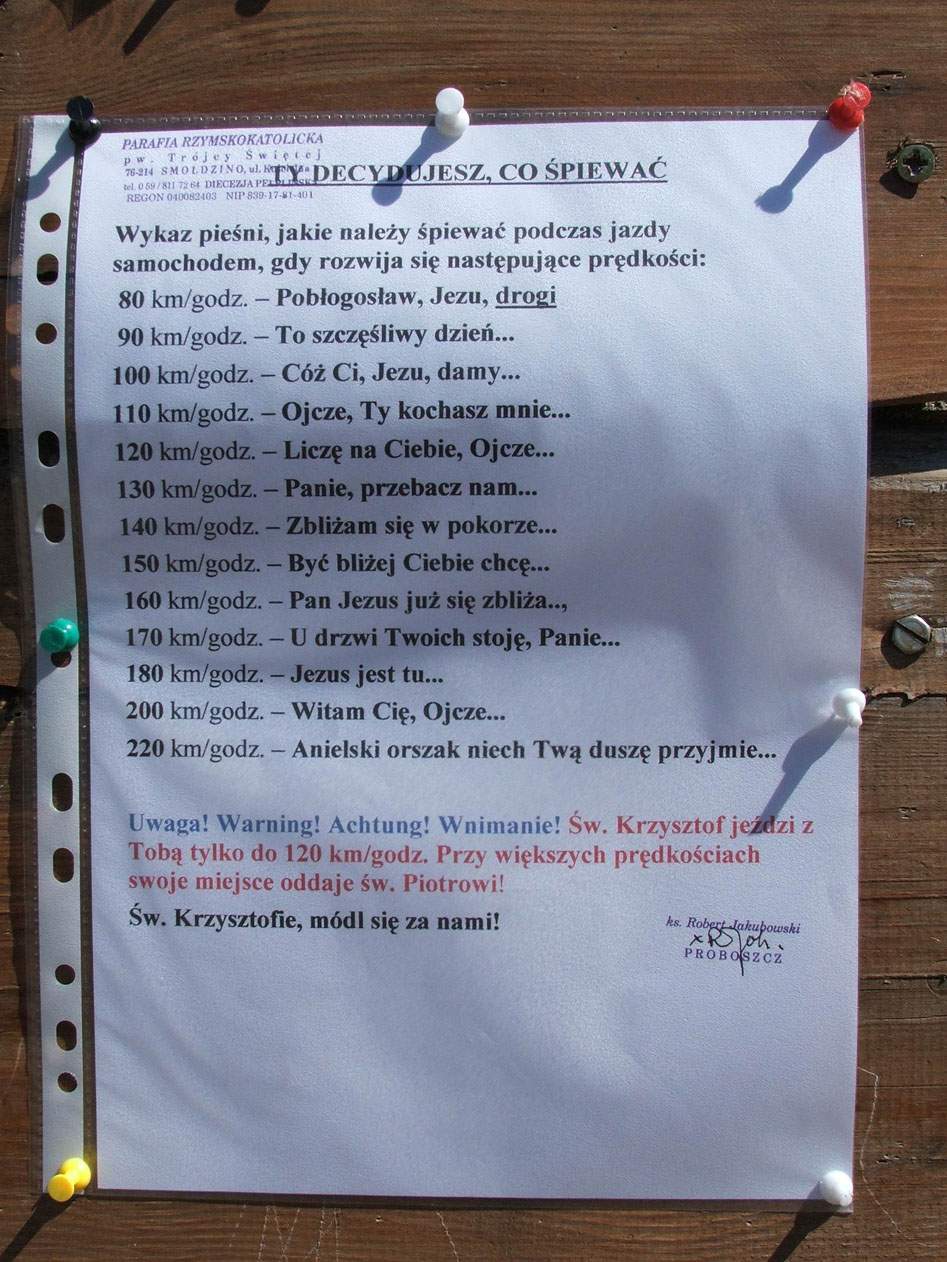 PARAFIA RZYMSKOKATOLICKA
pw. Trójcy Świętej
76-214 SMOŁDZINO, ul.
tel. 0 59/811 72 64 DIECEZJA
REGON 040082403 NIP 839-17-81-401
TY DECYDUJESZ, CO ŚPIEWAĆ
Wykaz pieśni, jakie należy śpiewać podczas jazdy
samochodem, gdy rozwija się następujące prędkości:
80 km/godz. – Pobłogosław, Jezu, drogi
90 km/godz. – To szczęśliwy dzień...
100 km/godz. – Cóż Ci, Jezu, damy...
110 km/godz. – Ojcze, Ty kochasz mnie...
120 km/godz. – Liczę na Ciebie, Ojcze...
130 km/godz. – Panie, przebacz nam...
140 km/godz. – Zbliżam się w pokorze...
150 km/godz. – Być bliżej Ciebie chcę...
160 km/godz. – Pan Jezus już się zbliża..,
170 km/godz. – U drzwi Twoich stoję, Panie...
180 km/godz. – Jezus jest tu...
200 km/godz. – Witam Cię, Ojcze...
220 km/godz. – Anielski orszak niech Twą duszę przyjmie...
Uwaga! Warning! Achtung! Wnimanie! Św. Krzysztof jeździ z
Tobą tylko do 120 km/godz. Przy większych prędkościach
swoje miejsce oddaje św. Piotrowi!
Św. Krzysztofie, módl się za nami!
ks. Robert Jakubowski
PROBOSZCZ